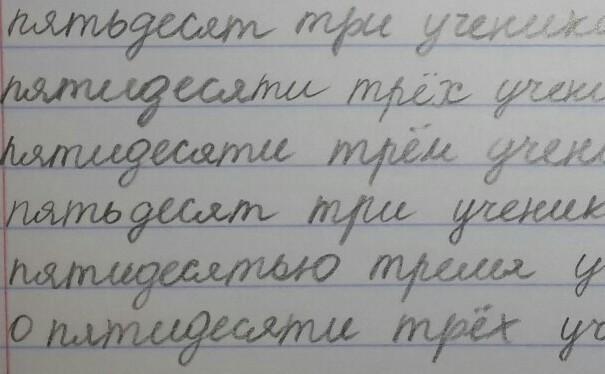 пятьдесят три ученика
пятидесяти трёх учени
пятидесяти трём учени
пятьдесят три ученик
пятидесятью тремя у
о пятидесяти трёх уч